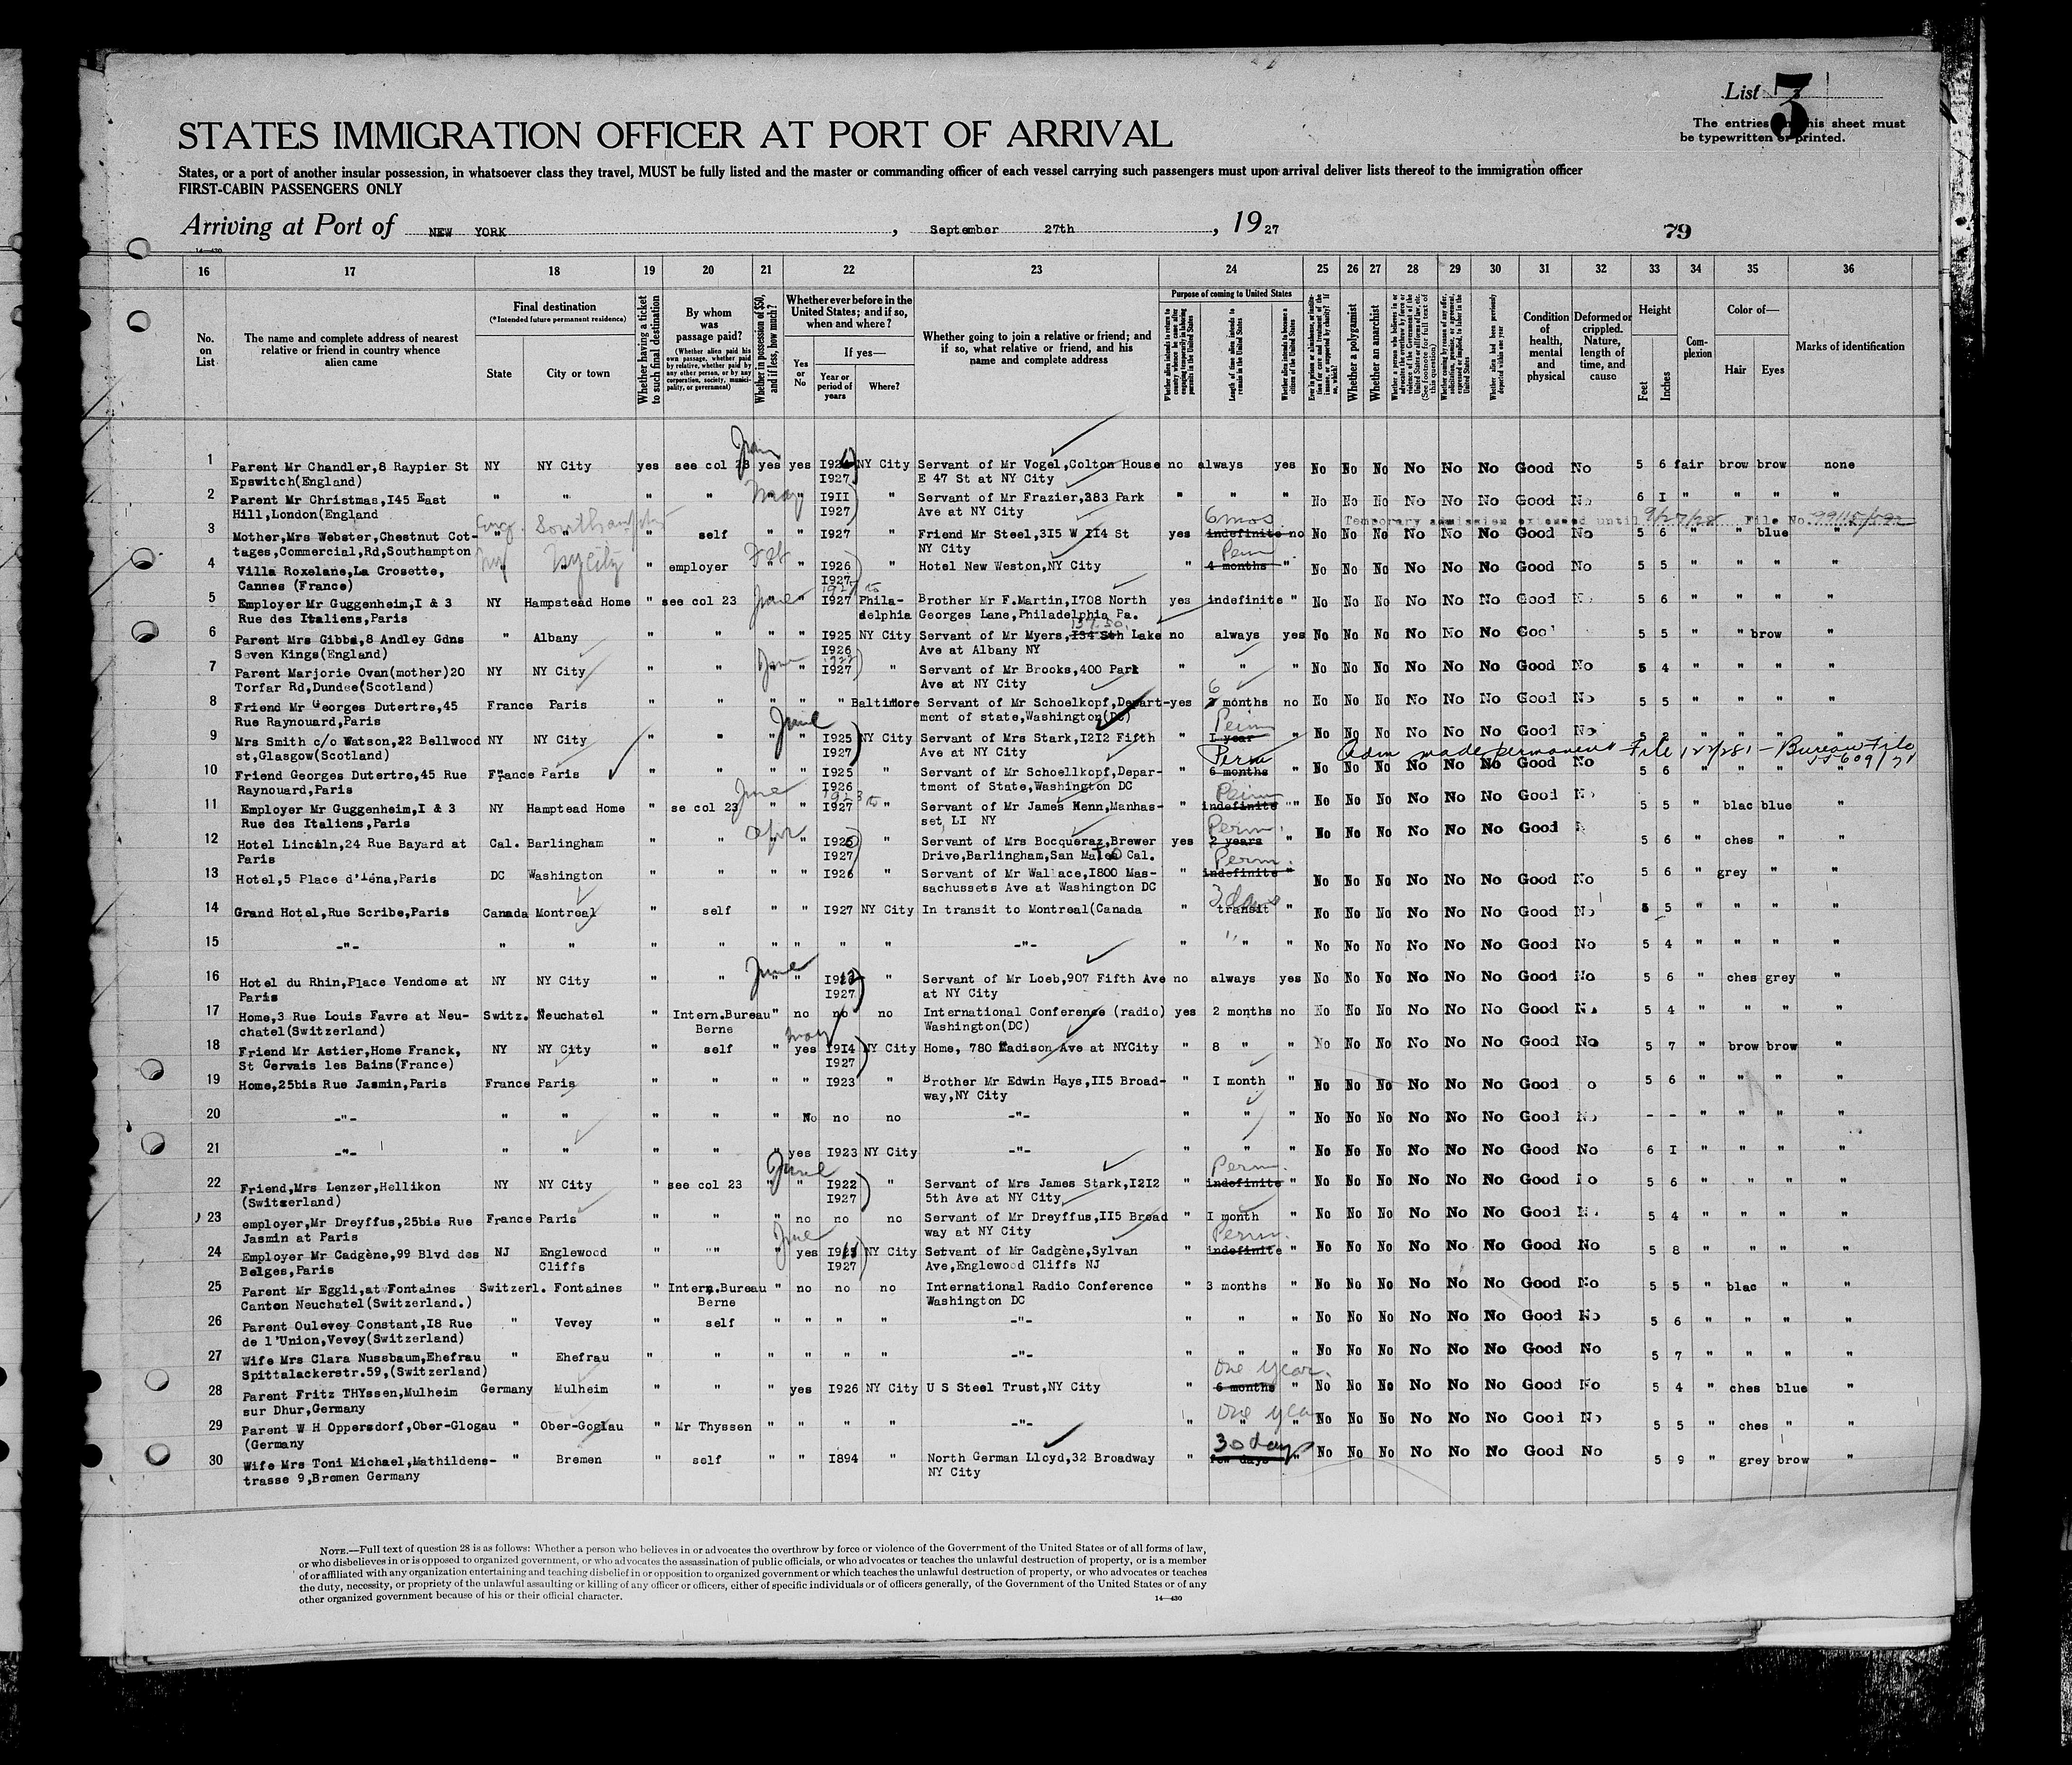 List 3
The entries on this sheet must
be typewritten or printed.
STATES IMMIGRATION OFFICER AT PORT OF ARRIVAL
States, or a port of another insular possession, in whatsoever class they travel, MUST be fully listed and the master or commanding officer of each vessel carrying such passengers must upon arrival deliver lists thereof to the immigration officer
FIRST-CABIN PASSENGERS ONLY
Arriving at Port of NEW YORK, September 27th, 1927
79
14—430
16 17 18 19 20 21 22 23 24 25 26 27 28 29 30 31 32 33 34 35 36
No. on List
The name and complete address of nearest relative or friend in country whence alien came
Final destination
(*Intended future permanent residence)
State
City or town
Whether having a ticket to such final destination
By whom was passage paid?
(Whether alien paid his own passage, whether paid by relative, whether paid by any other person, or by any corporation, society, municipality, or government)
Whether in possession of $50, and if less, how much?
Whether ever before in the United States; and if so, when and where?
Yes or No
If yes—
Year or period of years
Where?
Whether going to join a relative or friend; and if so, what relative or friend, and his name and complete address
Purpose of coming to United States
Length of time alien intends to remain in the United States
Whether alien intends to become a citizen of the United States
Whether a polygamist
Whether an anarchist
Condition of health, mental and physical
Deformed or crippled. Nature, length of time, and cause
Height
Feet
Inches
Complexion
Color of—
Hair
Eyes
Marks of identification
1 Parent Mr Chandler,8 Raypier St NY NY City yes see col 23 yes yes NY City Servant of Mr Vogel,Colton House no always yes No No No No No No Good No 5 6 fair brow brow none
Epswitch(England) I927 E 47 St at NY City
2 Parent Mr Christmas,I45 East " " " " May " I9II " Servant of Mr Frazier,383 Park " " " No No No No No No Good No 6 I " " " "
Hill,London(England I927 Ave at NY City
Eng. Southampton 6 mos Temporary admission extended until 9/27/28 File No.
3 Mother,Mrs Webster,Chestnut Cot- " " " self " " I927 " Friend Mr Steel,3I5 W II4 St yes indefinite no No No No No No No Good No 5 6 " " blue "
tages,Commercial,Rd,Southampton NY City
NY NY City Feb Perm
4 Villa Roxelane,La Crosette, " " employer " " I926 " Hotel New Weston,NY City " 4 months " No No No No No No Good No 5 5 " " " "
Cannes (France) I927
5 Employer Mr Guggenheim,I & 3 NY Hampstead Home " see col 23 June " I927 Phila- Brother Mr F.Martin,I708 North yes indefinite " No No No No No No Good 5 6 " " " "
Rue des Italiens,Paris delphia Georges Lane,Philadelphia Pa.
6 Parent Mrs Gibbs,8 Andley Gdns " Albany " " " " I925 NY City Servant of Mr Myers,I34 Sth Lake no always yes No No No No No No Good 5 5 " " brow "
Seven Kings(England) I926 Ave at Albany NY
7 Parent Marjorie Ovan(mother)20 NY NY City " " June " I927 " Servant of Mr Brooks,400 Park " " " No No No No No No Good No 5 4 " " " "
Torfar Rd,Dundee(Scotland) Ave at NY City
8 Friend Mr Georges Dutertre,45 France Paris " " " " " Baltimore Servant of Mr Schoelkopf,Depart- yes 6 months no No No No No No No Good No 5 5 " " " "
Rue Raynouard,Paris ment of state,Washington(DC)
June Perm
9 Mrs Smith c/o Watson,22 Bellwood NY NY City " " " " I925 NY City Servant of Mrs Stark,I2I2 Fifth " I year " No No No No No No Good No 5 2 " " " "
st,Glasgow(Scotland) I927 Ave at NY City
Perm Adm made permanent File 122/281 - Bureau File
10 Friend Georges Dutertre,45 Rue France Paris " " " " I925 " Servant of Mr Schoellkopf,Depar- " 6 months " No No No No No No Good No 5 6 " " " "
Raynouard,Paris I926 tment of State,Washington DC
June Perm
11 Employer Mr Guggenheim,I & 3 NY Hamptead Home " se col 23 " " I927 " Servant of Mr James Kenn,Manhas- " indefinite "" No No No No No No Good No 5 5 " blac blue "
Rue des Italiens,Paris set,LI NY
Apr Perm.
12 Hotel Lincoln,24 Rue Bayard at Cal. Barlingham " " " " " Servant of Mrs Bocqueraz,Brewer yes 2 years " No No No No No No Good 5 6 " ches " "
Paris I927 Drive,Barlingham,San Mateo Cal.
Perm.
13 Hotel,5 Place d'Iéna,Paris DC Washington " " " " I926 " Servant of Mr Wallace,I800 Mas- " indefinite " No No No No No No Good No 5 6 " grey " "
sachussets Ave at Washington DC
3 days
14 Grand Hotel,Rue Scribe,Paris Canada Montreal " self " " I927 NY City In transit to Montreal(Canada " transit " No No No No No No Good No 5 5 " " " "
15 -"- " " " " " " " " -"- " " " No No No No No No Good No 5 4 " " " "
June
16 Hotel du Rhin,Place Vendome at NY NY City " " " " " Servant of Mr Loeb,907 Fifth Ave no always yes No No No No No No Good No 5 6 " ches grey "
Paris I927 at NY City
17 Home,3 Rue Louis Favre at Neu- Switz. Neuchatel " Intern.Bureau " no no no International Conference (radio) yes 2 months no No No No No No No Good No 5 4 " " " "
chatel(Switzerland) Berne Washington(DC)
May
18 Friend Mr Astier,Home Franck, NY NY City " self " yes I9I4 NY City Home, 780 Madison Ave at NYCity " 8 " " No No No No No No Good No 5 7 " brow brow "
St Gervais les Bains(France) I927
19 Home,25bis Rue Jasmin,Paris France Paris " " " " I923 " Brother Mr Edwin Hays,II5 Broad- " I month " No No No No No No Good o 5 6 " " " "
way,NY City
20 -"- " " " " " No no no -"- " " " No No No No No No Good No - - " " " "
21 -"- " " " " " yes I923 NY City -"- " " " No No No No No No Good No 6 I " " " "
June Perm.
22 Friend,Mrs Lenzer,Hellikon NY NY City " see col 23 " " I922 " Servant of Mrs James Stark,I2I2 " indefinite " No No No No No No Good No 5 6 " " " "
(Switzerland) I927 5th Ave at NY City
23 employer,Mr Dreyffus,25bis Rue France Paris " " " no no no Servant of Mr Dreyffus,II5 Broad " I month " No No No No No No Good No 5 4 " " " "
Jasmin at Paris way at NY City
June Perm.
24 Employer Mr Cadgène,99 Blvd des NJ Englewood " "" " yes NY City Setvant of Mr Cadgène,Sylvan " indefinite " No No No No No No Good No 5 8 " " " "
Belges,Paris Cliffs I927 Ave,Englewood Cliffs NJ
25 Parent Mr Eggli,at Fontaines Switzerl. Fontaines " Intern.Bureau " no no no International Radio Conference " 3 months " No No No No No No Good No 5 5 " blac " "
Canton Neuchatel(Switzerland.) Berne Washington DC
26 Parent Oulevey Constant,I8 Rue " Vevey " self " " " " -"- " " " No No No No No No Good No 5 6 " " " "
de l'Union,Vevey(Switzerland)
27 Wife Mrs Clara Nussbaum,Ehefrau " Ehefrau " " " " " " -"- " " " No No No No No No Good No 5 7 " " " "
Spittalackerstr.59,(Switzerland)
One year.
28 Parent Fritz THYssen,Mulheim Germany Mulheim " " " yes I926 NY City U S Steel Trust,NY City " 6 months " No No No No No No Good No 5 4 " ches blue "
sur Dhur,Germany
One year
29 Parent W H Oppersdorf,Ober-Glogau " Ober-Goglau " Mr Thyssen " " " " -"- " " " No No No No No No Good No 5 5 " ches " "
(Germany
30 days
30 Wife Mrs Toni Michael,Mathildens- " Bremen " self " " I894 " North German Lloyd,32 Broadway " few days " No No No No No No Good No 5 9 " grey brow "
trasse 9,Bremen Germany NY City
NOTE.—Full text of question 28 is as follows: Whether a person who believes in or advocates the overthrow by force or violence of the Government of the United States or of all forms of law,
or who disbelieves in or is opposed to organized government, or who advocates the assassination of public officials, or who advocates or teaches the unlawful destruction of property, or is a member
of or affiliated with any organization entertaining and teaching disbelief in or opposition to organized government or which teaches the unlawful destruction of property, or who advocates or teaches
the duty, necessity, or propriety of the unlawful assaulting or killing of any officer or officers, either of specific individuals or of officers generally, of the Government of the United States or of any
other organized government because of his or their official character.
14—430